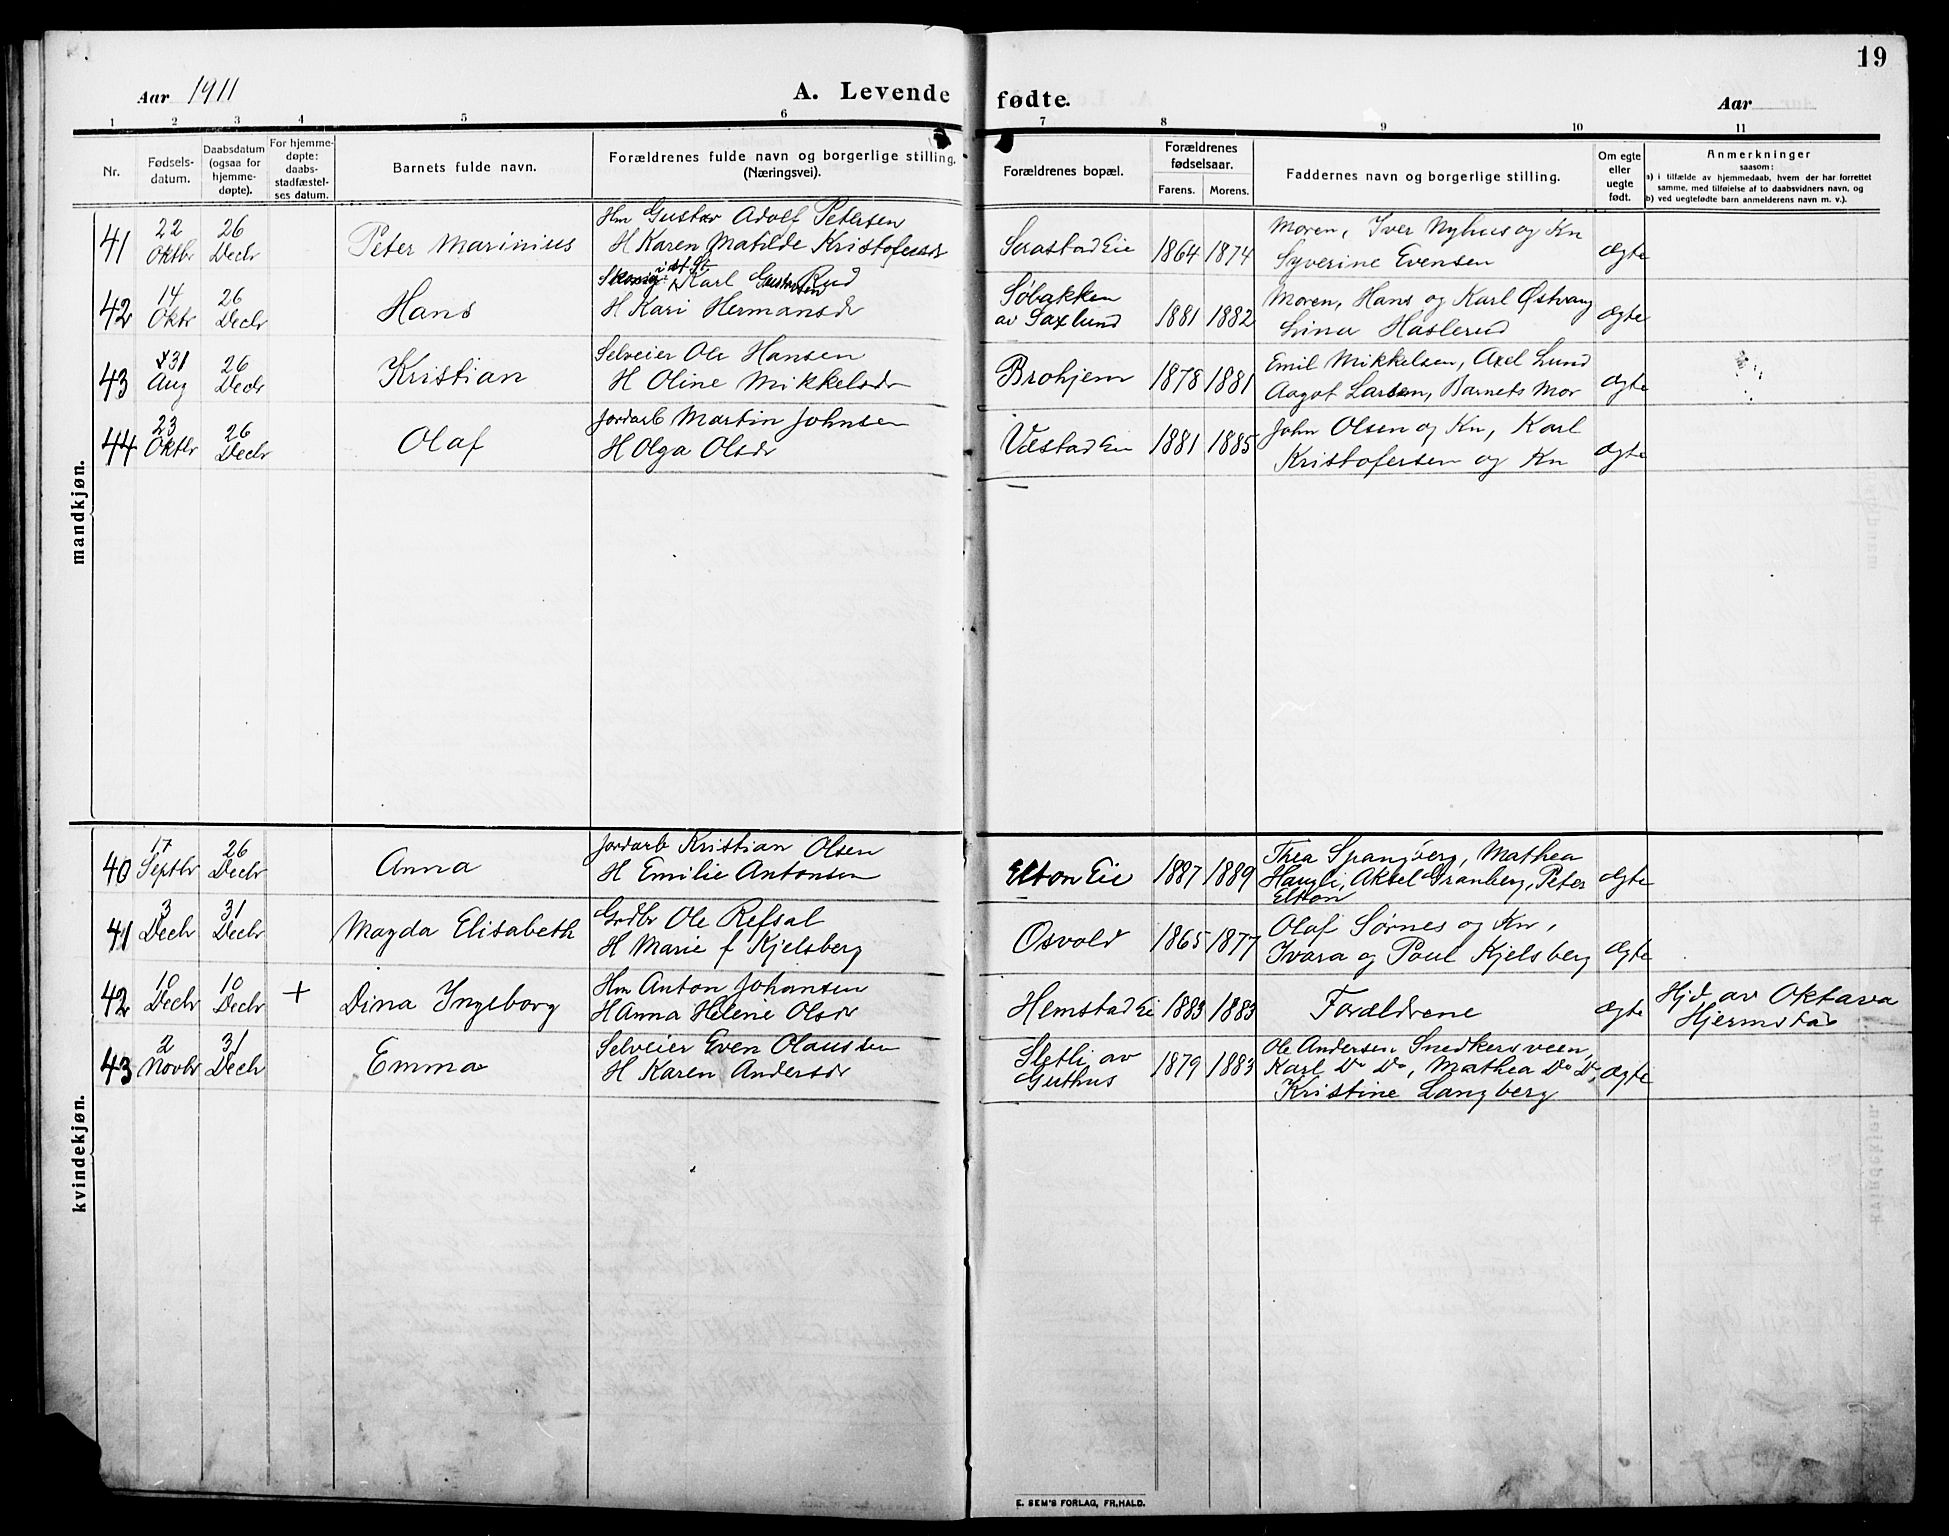 19
Aar 1911
A. Levende fødte.
Aar
1 2 3 4 5 6 7 8 9 10 11
Nr.
Fødsels-
datum.
Daabsdatum
(ogsaa for
hjemme-
døpte).
For hjemme-
døpte:
daabs-
stadfæstel-
ses datum.
Barnets fulde navn.
Forældrenes fulde navn og borgerlige stilling.
(Næringsvei).
Forældrenes bopæl.
Forældrenes
fødselsaar.
Farens. Morens.
Faddernes navn og borgerlige stilling.
Om egte
eller
uegte
født.
Anmerkninger
saasom:
a) i tilfælde av hjemmedaab, hvem der har forrettet
samme, med tilføielse af to daabsvidners navn, og
b) ved uegtefødte barn anmelderens navn m. v.).
mandkjøn.
41 22 Oktbr 26 Decbr Peter Marinius
Hm Gustav Adolf Petersen
H Karen Matilde Kristofersdr
1864 1874
Moren, Iver Nyhus og Kn
Syverine Evensen
ægte
42 14 Oktr 26 Decbr Hans
Karl Gustavsen Rud
H Kari Hermansdr
Søbakken
av Saxlund
1881 1882
Moren, Hans og Karl Østvang
Lina Haslerud
ægte
43 31 Aug 26 Decbr Kristian
Selveier Ole Hansen
H Oline Mikkelsdr
Brohjem
1878 1881
Emil Mikkelsen, Axel Lund
Aagot Larsen, Barnets Mor
ægte
44 23 Oktbr 26 Decbr Olaf
Jordarb Martin Johnsen
H Olga Olsdr
Væstad Eie
1881 1885
John Olsen og Kn, Karl
Kristofersen og Kn
ægte
kvindekjøn.
40 17 Septbr 26 Decbr Anna
Jordarb Kristian Olsen
H Emilie Antonsen
Elton Eie
1887 1889
Thea Spangberg, Mathea
Haugli, Aksel Granberg, Peter
Elton
ægte
41 3 Decbr 31 Decbr Magda Elisabeth
Grdbr Ole Refsal
H Marie f Kjelsberg
Osvold
1865 1877
Olaf Sørnes og Kn,
Ivara og Paul Kjelsberg
ægte
42 10 Decbr 10 Decbr + Dina Ingeborg
Hm Anton Johansen
H Anna Helene Olsdr
Hemstad Ei
1883 1883
Forældrene
ægte
Hjd av Oktava
Hjermstad
43 2 Novbr 31 Decbr Emma
Selveier Even Olaussen
H Karen Andersdr
Sletli av
Guthus
1879 1883
Ole Andersen Snedkersveen,
Karl Do Do, Mathea Do Do,
Kristine Langberg
ægte
E. SEM'S FORLAG, FR.HALD.